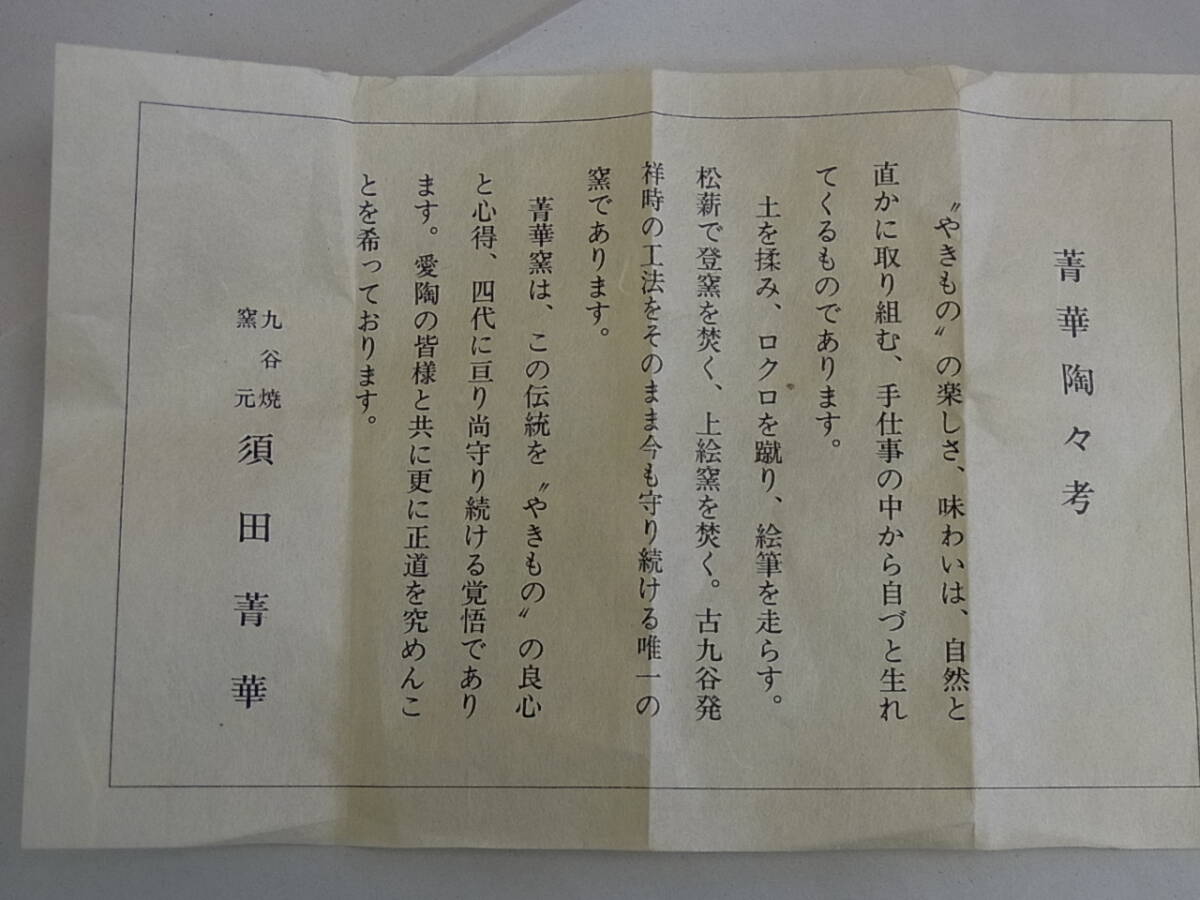 菁華陶々考
〝やきもの〟の楽しさ、味わいは、自然と
直かに取り組む、手仕事の中から自づと生れ
てくるものであります。
土を揉み、ロクロを蹴り、絵筆を走らす。
松薪で登窯を焚く、上絵窯を焚く。古九谷発
祥時の工法をそのまま今も守り続ける唯一の
窯であります。
菁華窯は、この伝統を〝やきもの〟の良心
と心得、四代に亘り尚守り続ける覚悟であり
ます。愛陶の皆様と共に更に正道を究めんこ
とを希っております。
九谷焼
窯元
須田菁華